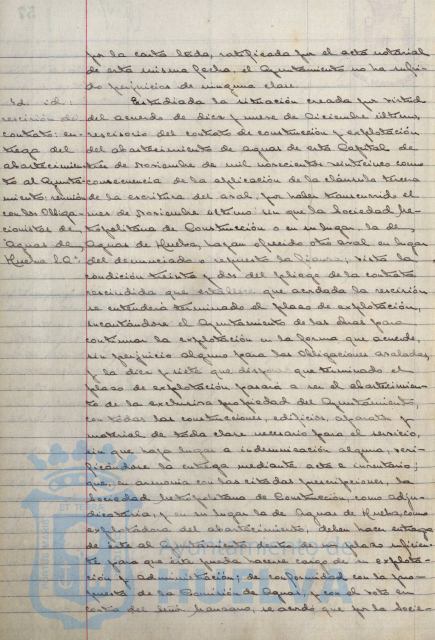 por la carta leida, ratificada por el acta notarial
de esta misma fecha, el Ayuntamiento no ha sufri-
do perjuicios de ninguna clase.
Id. id:
rescisión de
contrato: en-
trega del
abastecimien-
to al Ayunta-
miento: reunión
con los Obliga-
cionistas de
"Aguas de
Huelva S.A."
Estudiada la situación creada por virtud
del acuerdo de diez y nueve de Diciembre último,
rescisorio del contrato de construcción y explotación
del abastecimiento de aguas de esta Capital de
de Noviembre de mil novecientos veinticinco como
consecuencia de la aplicación de la cláusula tercera
de la escritura del aval, por haber transcurrido el
mes de Noviembre último sin que la Sociedad Me-
tropolitana de Construcción o en su lugar la de
Aguas de Huelva, hayan ofrecido otro aval en lugar
del denunciado o repuesto la fianza; vista la
condición treinta y dos del pliego de la contrata
rescindida que establece que acordada la rescisión
se entenderá terminado el plazo de explotación,
incautándose el Ayuntamiento de las obras para
continuar la explotación en la forma que acuerde,
sin perjuicio alguno para las Obligaciones avaladas,
y la diez y siete que dispone que terminado el
plazo de explotación pasará a ser el abastecimien-
to de la exclusiva propiedad del Ayuntamiento,
con todas las construcciones, edificios, aparatos y
material de toda clase necesario para el servicio,
sin que haya lugar a indemnización alguna, veri-
ficándose la entrega mediante acta e inventario;
que, en armonía con las citadas prescripciones, la
Sociedad Metropolitana de Construcción, como adju-
dicataria, y en su lugar la de Aguas de Huelva, como
explotadora del abastecimiento, deben hacer entrega
de éste al Ayuntamiento dentro de un plazo suficien-
te para que éste pueda hacerse cargo de su explota-
ción y administración; de conformidad con la pro-
puesta de la Comisión de Aguas, y con el voto en
contra del Señor Manzano, se acordó que por la Socie-
Ayuntamiento de
HUELVA